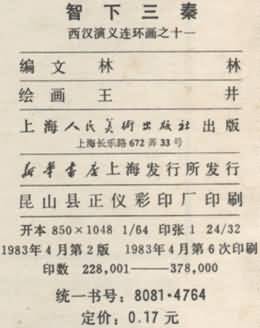 智下三秦
西汉演义连环画之十一
编文 林林
绘画 王井
上海人民美術出版社出版
上海长乐路 672 弄 33 号
新華書店上海发行所发行
昆山县正仪彩印厂印刷
开本 850×1048 1/64 印张 1 24/32
1983年4月第2版 1983年4月第6次印刷
印数 228,001——378,000
统一书号：8081·4764
定价：0.17 元